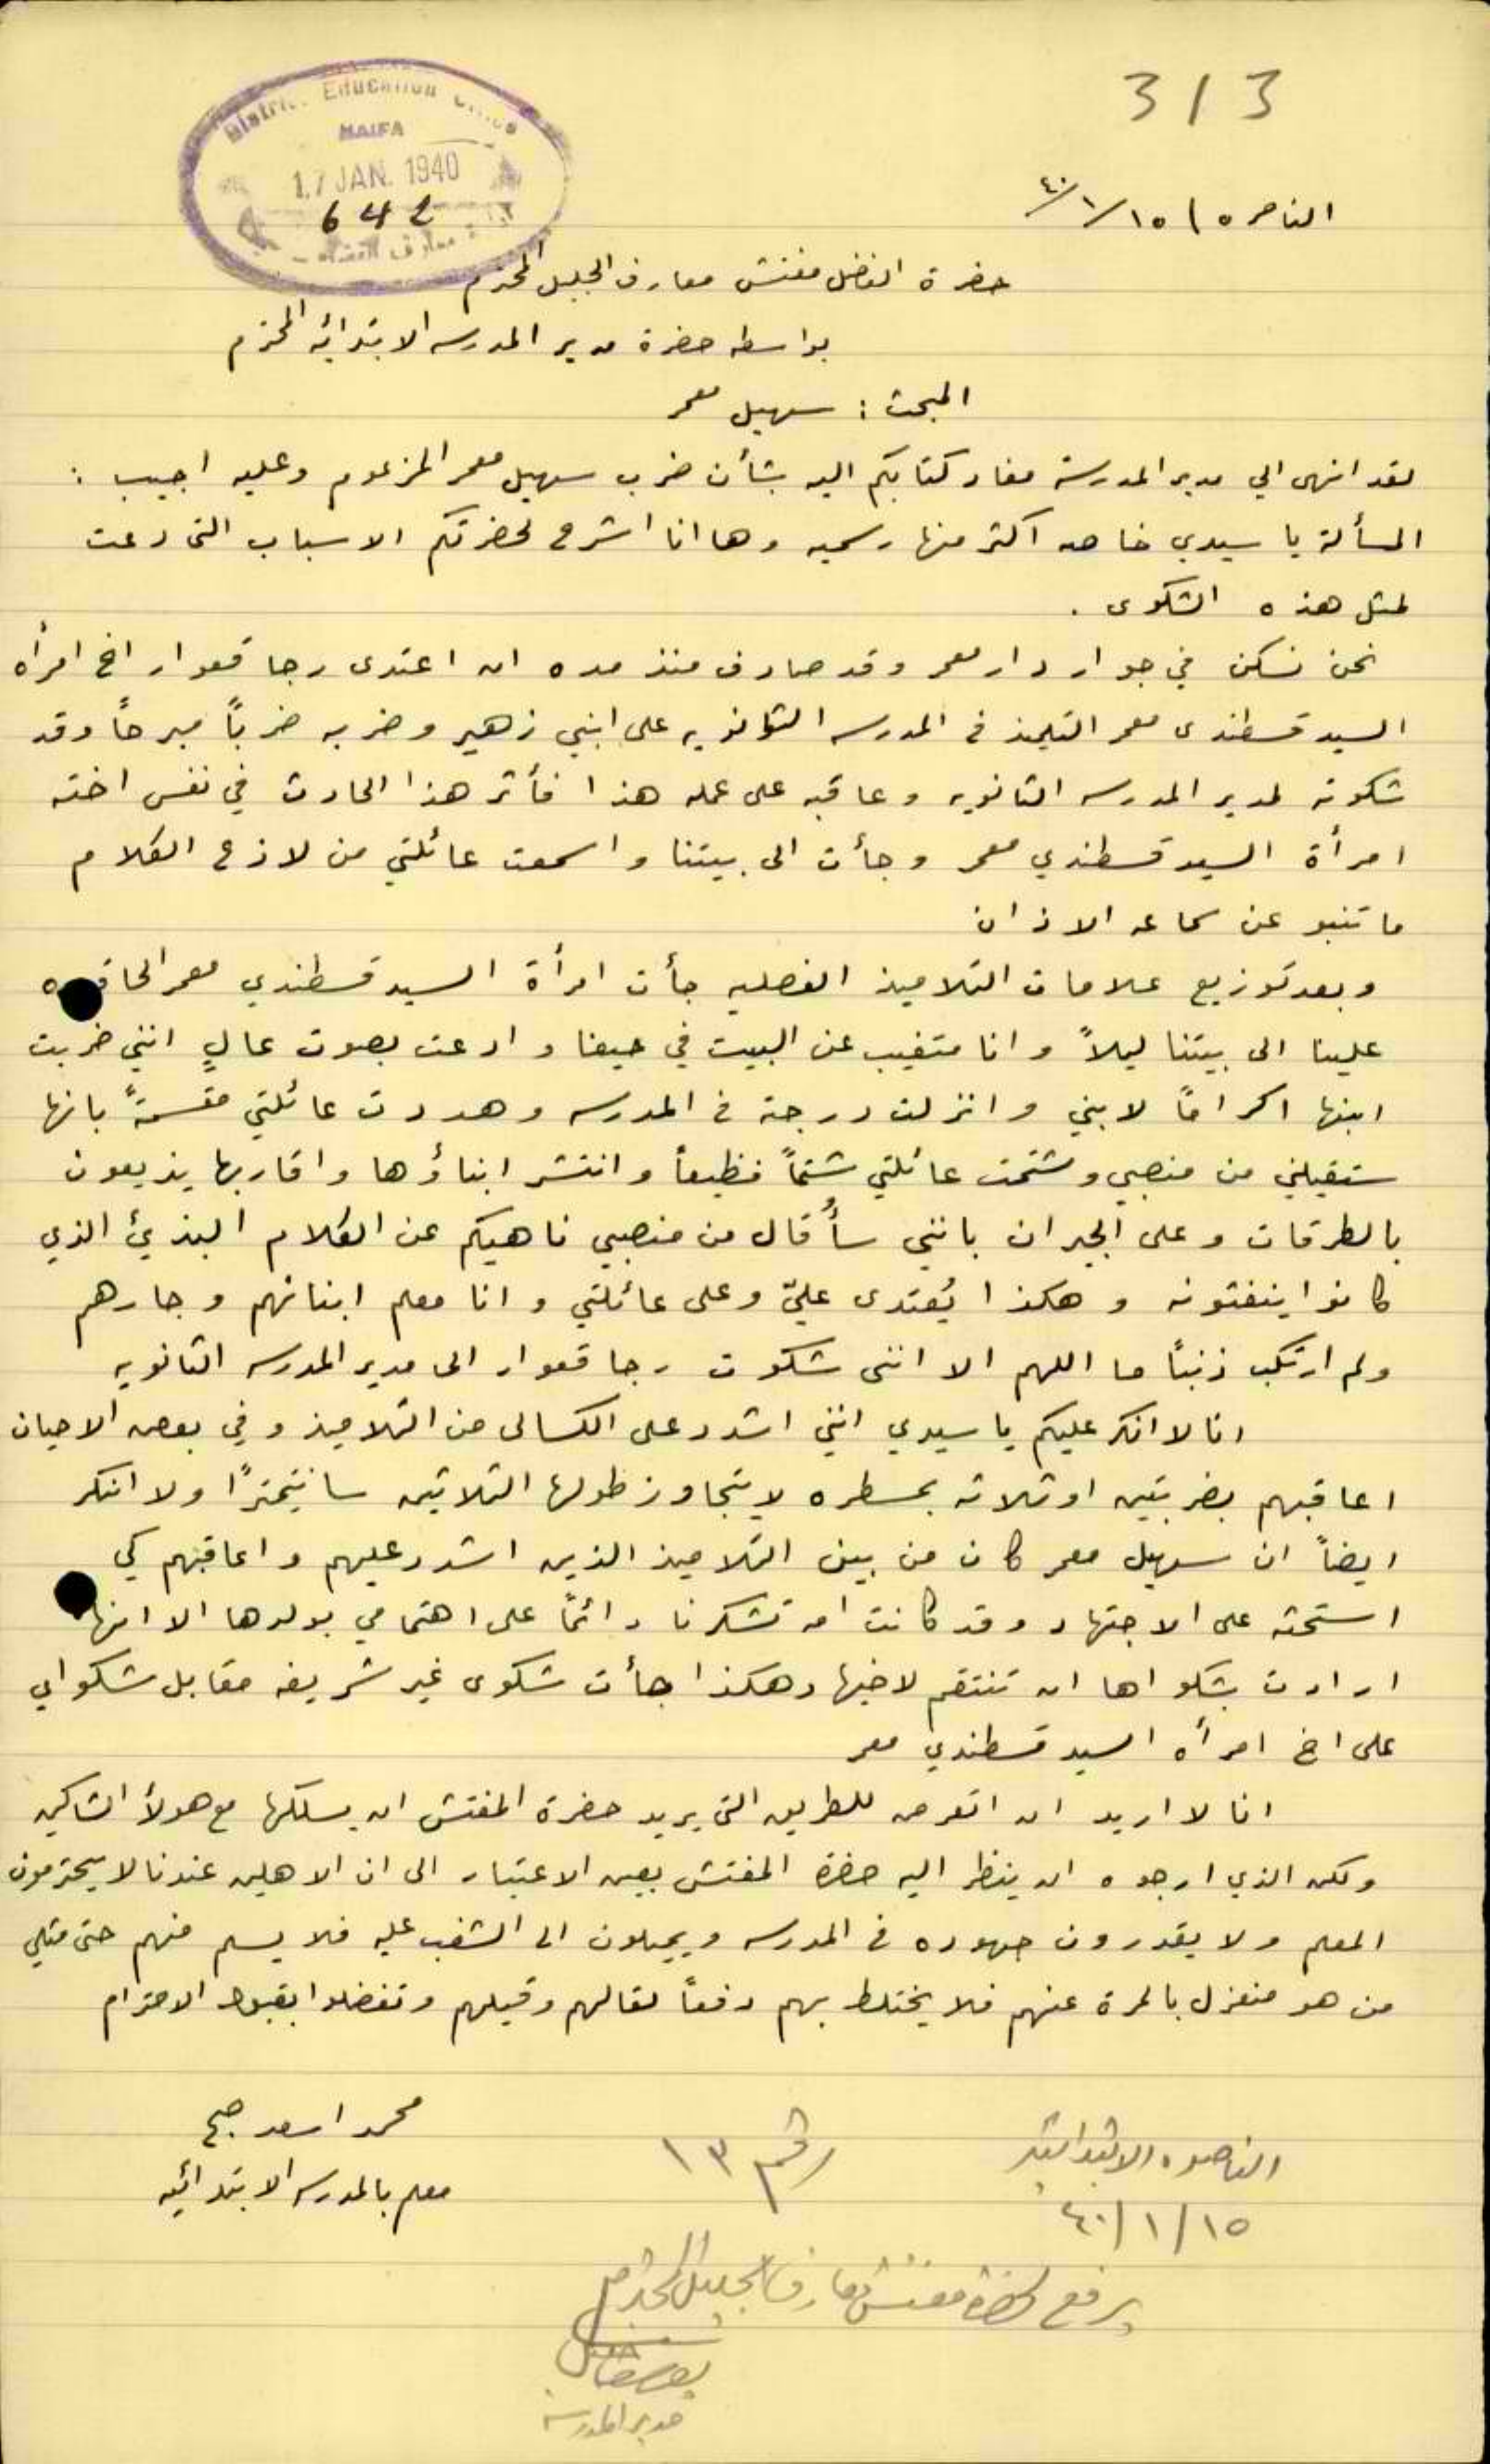 3/3
District Education Office
HAIFA
17 JAN. 1940
642
الناصره ١٥/١/٤٠
حضرة الفاضل مفتش معارف الجليل المحترم
بواسطه حضرة مدير المدرسه الابتدائيه المحترم
المبحث : سهيل معمر
لقد انهى الي مدير المدرسة مفاد كتابكم اليه بشأن ضرب سهيل معمر المزعوم وعليه اجيب :
المسألة يا سيدي خاصه اكثر منها رسميه وها انا اشرح لحضرتكم الاسباب التي دعت
لمثل هذه الشكوى .
نحن نسكن في جوار دار معمر وقد صادف منذ مده ان اعتدى رجا قعوار اخ امرأه
السيد قسطندى معمر التلميذ في المدرسه الثانويه على ابني زهير وضربه ضرباً مبرحاً وقد
شكوته لمدير المدرسه الثانويه وعاقبه على عمله هذا فأثر هذا الحادث في نفس اخته
امرأة السيد قسطندي معمر وجأت الى بيتنا واسمعت عائلتي من لاذع الكلام
ما تنبو عن سماعه الاذان
وبعد توزيع علامات التلاميذ الفصليه جأت امرأة السيد قسطندي معمر الحاقده
علينا الى بيتنا ليلاً وانا متغيب عن البيت في حيفا وادعت بصوت عالٍ انني ضربت
ابنها اكراماً لابني وانزلت درجته في المدرسه وهددت عائلتي مقسمةً بانها
ستقيلني من منصبي وشتمت عائلتي شتماً فظيعاً وانتشر ابناؤها واقاربها يذيعون
بالطرقات وعلى الجيران بانني سأُقال من منصبي ناهيكم عن الكلام البذيئ الذي
كانوا ينفثونه وهكذا يُعتدى عليّ وعلى عائلتي وانا معلم ابنائهم وجارهم
ولم ارتكب ذنباً ما اللهم الا انني شكوت رجا قعوار الى مدير المدرسه الثانويه
انا لا انكر عليكم يا سيدي انني اشدد على الكسالى من التلاميذ وفي بعض الاحيان
اعاقبهم بضربتين او ثلاثه بمسطره لا يتجاوز طولها الثلاثين سانتيمترًا ولا انكر
ايضاً ان سهيل معمر كان من بين التلاميذ الذين اشدد عليهم واعاقبهم كي
استحثه على الاجتهاد وقد كانت امه تشكرنا دائماً على اهتمامي بولدها الا انها
ارادت بشكواها ان تنتقم لاخيها وهكذا جأت شكوى غير شريفه مقابل شكواي
على اخ امرأه السيد قسطندي معمر
انا لا اريد ان اتعرض للطريق التي يريد حضرة المفتش ان يسلكها مع هولأ الشاكين
ولكن الذي ارجوه ان ينظر اليه حضرة المفتش بعين الاعتبار الى ان الاهلين عندنا لا يحترمون
المعلم ولا يقدرون جهوده في المدرسه ويميلون الى الشغب عليه فلا يسلم منهم حتى مثلي
من هو منعزل بالمرة عنهم فلا يختلط بهم دفعاً لقالهم وقيلهم وتفضلوا بقبول الاحترام
محمد اسعد صبح
معلم بالمدرسه الابتدائيه
الناصره الابتدائيه
رقم ١٣
١٥/١/٤٠
يرفع لحضرة مفتش معارف الجليل المحترم
مدير المدرسه